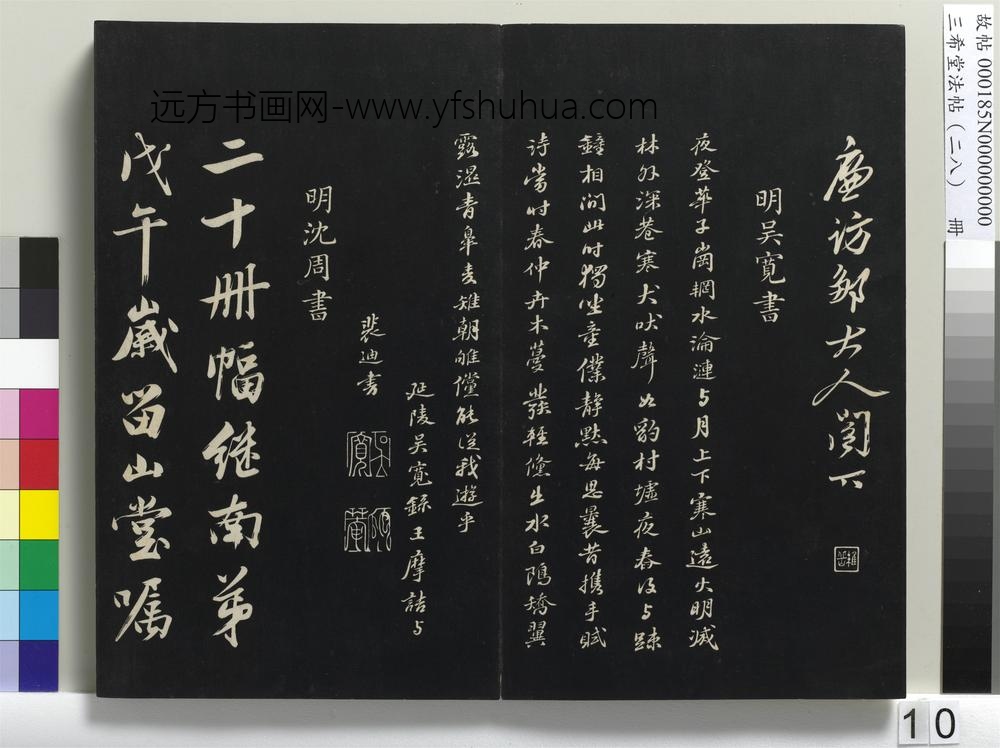 廉访邹大人阁下
明吴寬書
夜登華子崗輞水淪漣与月上下寒山遠火明滅
林外深巷寒犬吠聲如豹村墟夜舂復与疎
鐘相间此时獨坐童僕静默每思曩昔攜手賦
诗當时春仲卉木蔓發輕鯈出水白鷗矯翼
露濕青皋麦雉朝雊儻能從我遊乎
延陵吴寬錄王摩詰与
裴迪书
明沈周書
二十冊幅继南弟
戊午歲留山堂嘱
远方书画网-www.yfshuhua.com
故帖 000185N000000000
三希堂法帖（二八） 冊
10